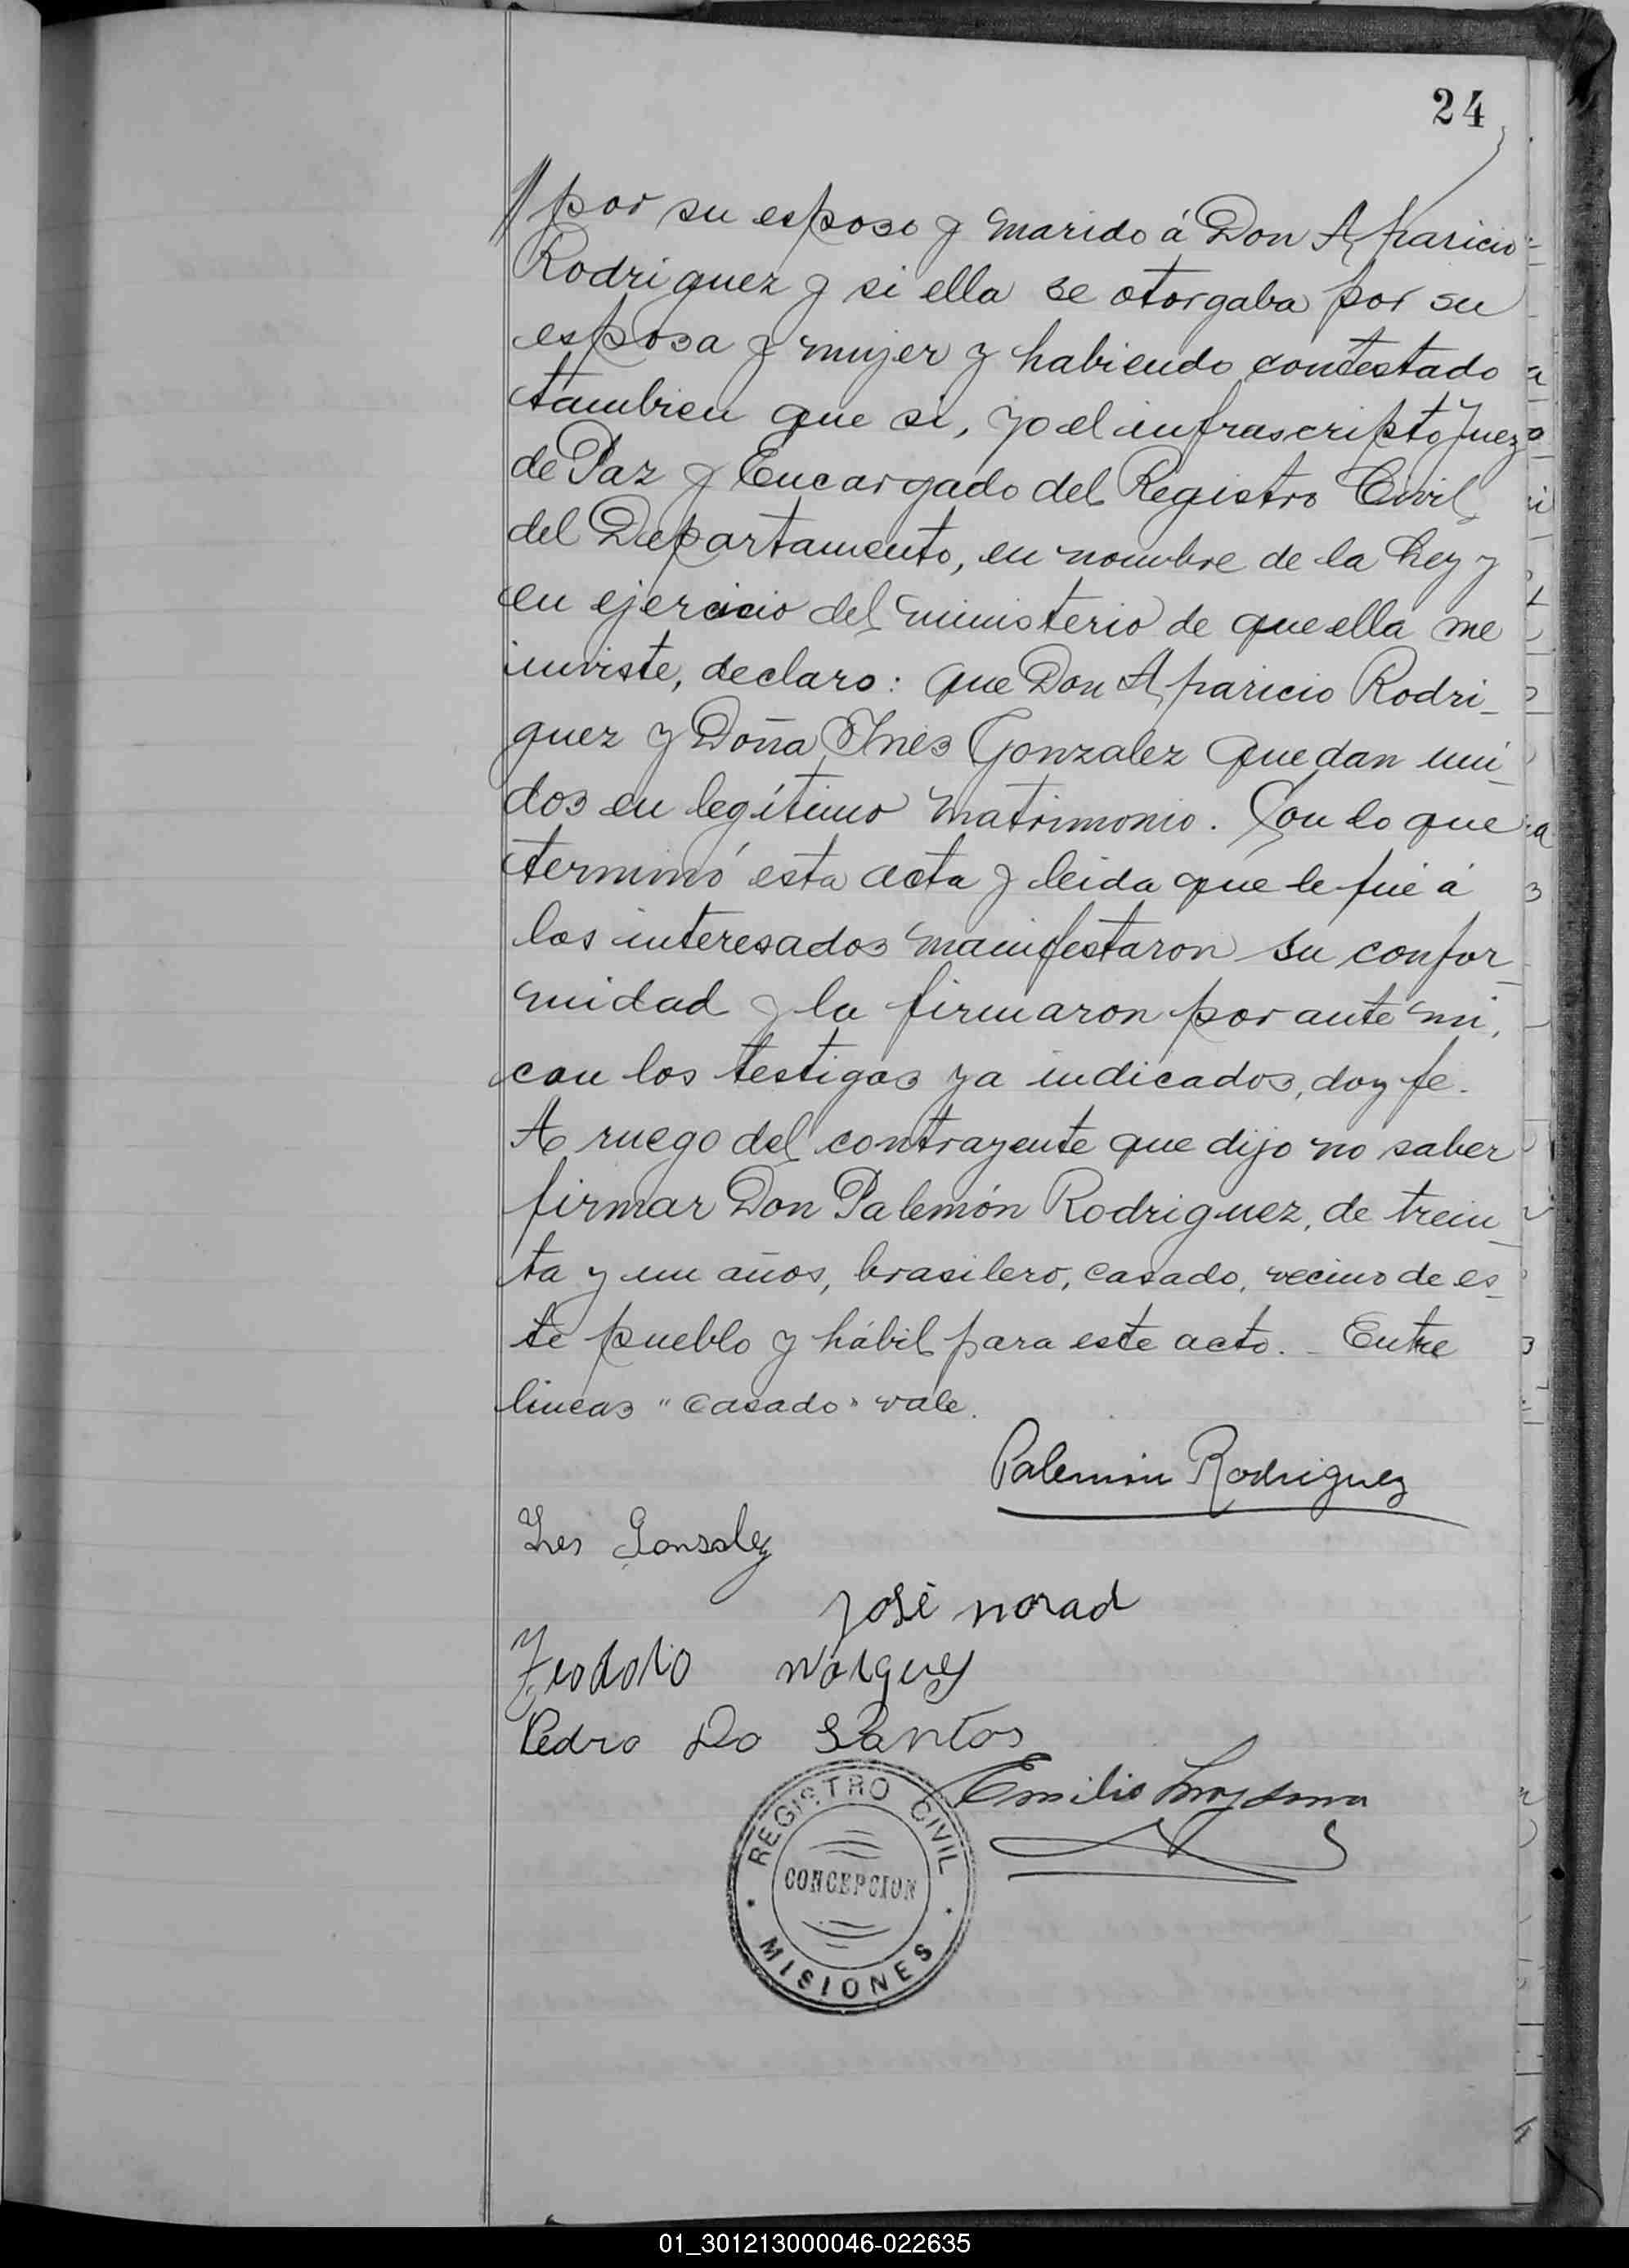 24
por su esposo y marido á Don Aparicio
Rodriguez y si ella se otorgaba por su
esposa y mujer y habiendo contestado
tambien que si, yo el infrascripto Juez
de Paz y Encargado del Registro Civil
del Departamento, en nombre de la Ley y
en ejercicio del ministerio de que ella me
inviste, declaro: que Don Aparicio Rodri-
guez y Doña Ines Gonzalez quedan uni-
dos en legítimo matrimonio. Con lo que
terminó esta acta y leida que le fué á
los interesados manifestaron su confor-
midad y la firmaron por ante mi,
con los testigos ya indicados, doy fe.
A ruego del contrayente que dijo no saber
firmar Don Palemón Rodriguez, de trein-
ta y un años, brasilero, casado, vecino de es-
te pueblo y hábil para este acto. - Entre
lineas "casado" vale.
Palemón Rodriguez
Ines Gonsalez
José norad
Pedro Do Santos
Emilio
REGISTRO CIVIL
CONCEPCION
MISIONES
01_301213000046-022635